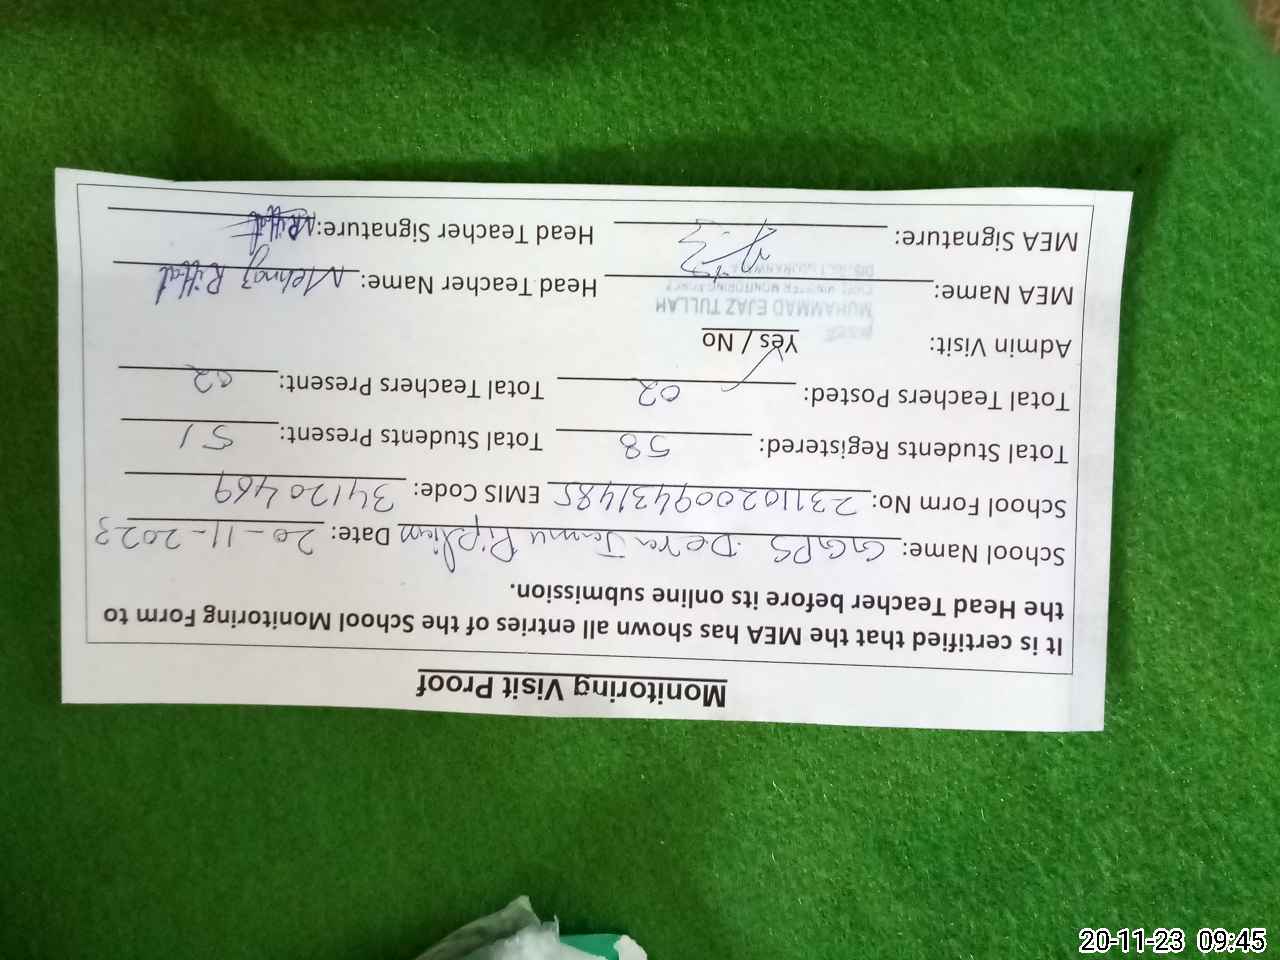 Monitoring Visit Proof
It is certified that the MEA has shown all entries of the School Monitoring Form to
the Head Teacher before its online submission.
School Name: GGPS Dera Jammu Piplian Date: 20-11-2023
School Form No: 231102009431485 EMIS Code: 34120469
Total Students Registered: 58 Total Students Present: 51
Total Teachers Posted: 02 Total Teachers Present: 02
Admin Visit: Yes / No
MUHAMMAD EJAZ TULLAH
MEA Name: Head Teacher Name: Mehnaz Riffat
MEA Signature: Head Teacher Signature: MRiffat
20-11-23 09:45